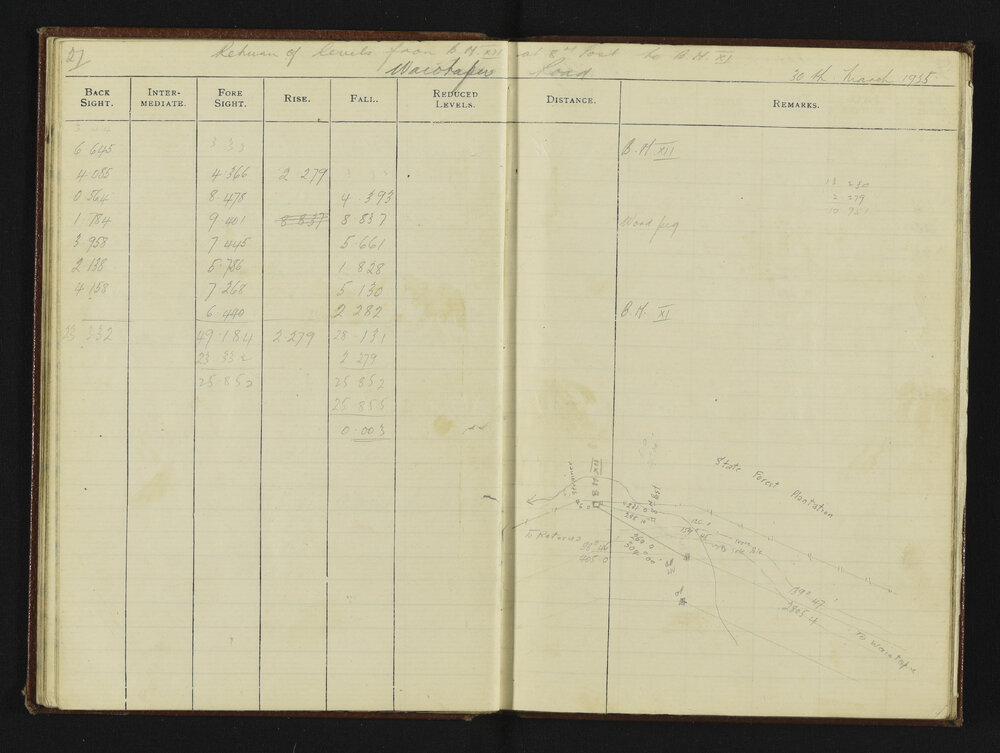 27
Return of Levels from B.M. XII at 8 post to B.M. XI
Waiotapu Road
30 th March 1935
BACK SIGHT. INTER-MEDIATE. FORE SIGHT. RISE. FALL. REDUCED LEVELS. DISTANCE. REMARKS.
3 44
6 645 3 33 B.M. XII
4.085 4.366 2 279
13 230
0 564 8.478 4.393
2 279
10 951
1.784 9.401 8 837 8 837 Wood peg
3.958 7.445 5.661
2 138 5.786 1.828
4.158 7.268 5.130
6.440 2 282 B.M. XI
23 332 49.184 2.279 28.131
23 332 2 279
25.852 25 852
25 855
0.003
State Forest Plantation
B M XII
To Rotorua
98° 44'
405 0
269 0
309° 00'
139° 47'
2805.4
To Waiotapu